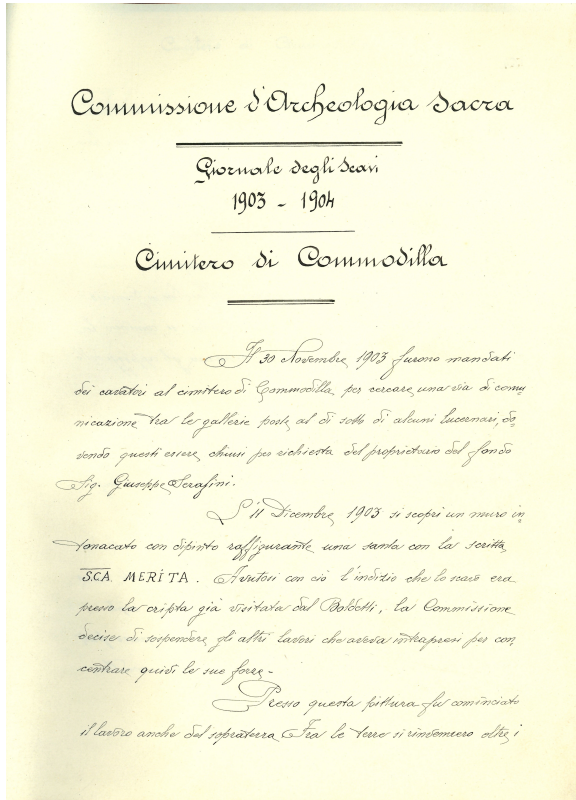 Commissione d'Archeologia Sacra
Giornale degli Scavi
1903 - 1904
Cimitero di Commodilla
Il 30 Novembre 1903 furono mandati
dei cavatori al cimitero di Commodilla per cercare una via di comu-
nicazione tra le gallerie poste al di sotto di alcuni lucernari, do-
vendo questi essere chiusi per richiesta del proprietario del fondo
Sig. Giuseppe Serafini.
L'11 Dicembre 1903 si scoprì un muro in-
tonacato con dipinto raffigurante una santa con la scritta
S̅C̅A̅ MERITA. Avutosi con ciò l'indizio che lo scavo era
presso la cripta già visitata dal Boldetti, la Commissione
decise di sospendere gli altri lavori che aveva intrapresi per con-
centrare quivi le sue forze -
Presso questa pittura fu cominciato
il lavoro anche del sopraterra. Fra le terre si rinvennero oltre i